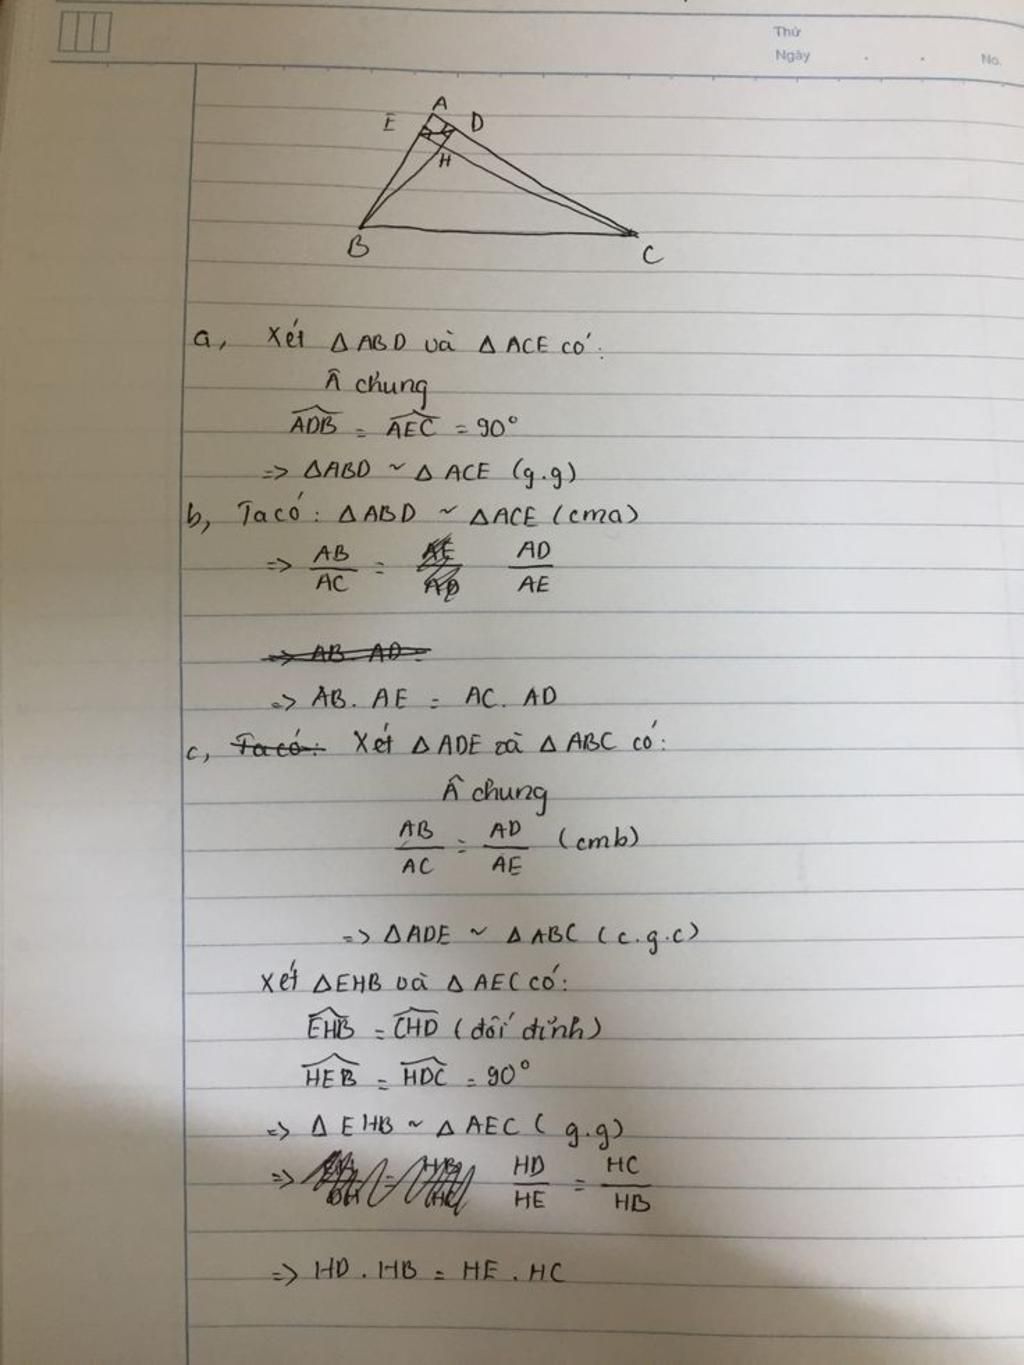 Thứ
Ngày . . No.
A
E D
H
B
C
a, Xét △ABD và △ACE có:
Â chung
ADB = AEC = 90°
=> △ABD ~ △ACE (g.g)
b, Ta có: △ABD ~ △ACE (cma)
=> AB/AC = AD/AE
=> AB. AD =
=> AB. AE = AC. AD
c, Ta có: Xét △ADE và △ABC có:
Â chung
AB/AC = AD/AE (cmb)
=> △ADE ~ △ABC (c.g.c)
Xét △EHB và △AEC có:
EHB = CHD (đối đỉnh)
HEB = HDC = 90°
=> △EHB ~ △AEC (g.g)
=> HD/HE = HC/HB
=> HD . HB = HE . HC